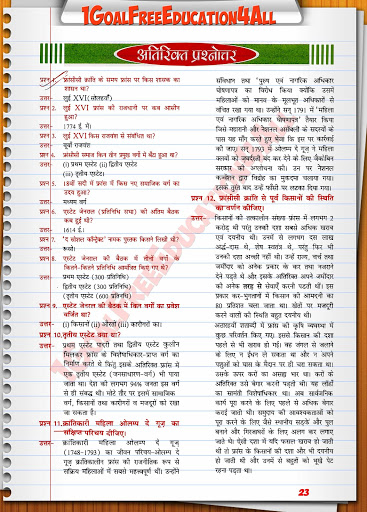 1GoalFreeEducation4All
अतिरिक्त प्रश्नोत्तर
प्रश्न 1. फ्रांसीसी क्रांति के समय फ्रांस पर किस शासक का
शासन था?
उत्तर- लुई XVI (सोलहवाँ)
प्रश्न 2. लुई XVI फ्रांस की राजगद्दी पर कब आसीन
हुआ?
उत्तर- 1774 ई. में।
प्रश्न 3. लुई XVI किस राजवंश से संबंधित था?
उत्तर- बूर्बो राजवंश
प्रश्न 4. फ्रांसीसी समाज किन तीन प्रमुख वर्गों में बँटा हुआ था?
उत्तर- (i) प्रथम एस्टेट (ii) द्वितीय एस्टेट
(iii) तृतीय एस्टेट।
प्रश्न 5. 18वीं सदी में फ्रांस में किस नए सामाजिक वर्ग का
उदय हुआ?
उत्तर- मध्यम वर्ग
प्रश्न 6. एस्टेट जेनराल (प्रतिनिधि सभा) की अंतिम बैठक
कब हुई थी?
उत्तर- 1614 ई.।
प्रश्न 7. 'द सोशल कॉन्ट्रैक्ट' नामक पुस्तक किसने लिखी थी?
उत्तर- रूसो।
प्रश्न 8. एस्टेट जेनराल की बैठक में तीनों वर्गों के
कितने-कितने प्रतिनिधि आमंत्रित किए गए थे?
उत्तर- प्रथम एस्टेट (300 प्रतिनिधि)
द्वितीय एस्टेट (300 प्रतिनिधि)
तृतीय एस्टेट (600 प्रतिनिधि)
प्रश्न 9. एस्टेट जेनराल की बैठक में किन वर्गों का प्रवेश
वर्जित था?
उत्तर- (i) किसानों (ii) औरतों (iii) कारीगरों का।
प्रश्न 10. तृतीय एस्टेट क्या था?
उत्तर- प्रथम एस्टेट पादरी तथा द्वितीय एस्टेट कुलीन
मिलकर फ्रांस के विशेषाधिकार-प्राप्त वर्ग का
निर्माण करते थे किंतु इसके अतिरिक्त फ्रांस में
एक तृतीय एस्टेट (जनसाधारण-वर्ग) भी पाया
जाता था। देश की लगभग 94% जनता इस वर्ग
से ही संबद्ध थी। मोटे तौर पर इसमें सामाजिक
वर्ग, किसानों तथा कारीगरों व मजदूरों को रखा
जा सकता है।
प्रश्न 11. क्रांतिकारी महिला ओलम्प दे गूज़ का
संक्षिप्त परिचय दीजिए।
उत्तर- क्रांतिकारी महिला ओलम्प दे गूज़
(1748-1793) का जीवन परिचय-ओलम्प दे
गूज़ क्रांतिकालीन फ्रांस की राजनीतिक रूप से
सक्रिय महिलाओं में सबसे महत्त्वपूर्ण थी। उन्होंने
संविधान तथा 'पुरुष एवं नागरिक अधिकार
घोषणापत्र' का विरोध किया क्योंकि उसमें
महिलाओं को मानव के मूलभूत अधिकारों से
वंचित रखा गया था। उन्होंने सन् 1791 में 'महिला
एवं नागरिक अधिकार घोषणापत्र' तैयार किया
जिसे महारानी और नेशनल असेंबली के सदस्यों के
पास यह माँग करते हुए भेजा कि इस पर कार्रवाई
की जाए। सन् 1793 में ओलम्प दे गूज़ ने महिला
क्लबों को जबर्दस्ती बंद कर देने के लिए जैकोबिन
सरकार की आलोचना की। उन पर नेशनल
कन्वेंशन द्वारा विद्रोह का मुकदमा चलाया गया।
इसके तुरंत बाद उन्हें फाँसी पर लटका दिया गया।
प्रश्न 12. फ्रांसीसी क्रांति से पूर्व किसानों की स्थिति
का वर्णन कीजिए।
उत्तर- किसानों की तत्कालीन संख्या फ्रांस में लगभग 2
करोड़ थी परंतु उनकी दशा सबसे अधिक खराब
एवं दयनीय थी। उनमें से लगभग दस लाख
अर्द्ध-दास थे, शेष स्वतंत्र थे, परंतु फिर भी
उनकी दशा अच्छी नहीं थी। उन्हें राज्य, चर्च तथा
जमींदारों को अनेक प्रकार के कर तथा नजराने
देने पड़ते थे और इसके अतिरिक्त अपने जमींदार
को अनेक तरह से सेवाएँ करनी पड़ती थीं। इस
प्रकार कर-भुगतानों में किसान की आमदनी का
80 प्रतिशत चला जाता था। खेतों पर मजदूरी
करने वालों की स्थिति बहुत दयनीय थी।
अठारहवीं शताब्दी में फ्रांस की कृषि व्यवस्था में
कुछ परिवर्तन किए गए। इससे किसानों की दशा
पहले से भी खराब हो गई। वह जंगल से जलाने
के लिए न ईंधन ले सकता था और न अपने
पशुओं को घास के मैदान पर ही चरा सकता था।
उसके ऊपर करों का असह्य भार था। करों के
अतिरिक्त उसे बेगार करनी पड़ती थी। यह लॉर्डों
का सामंती विशेषाधिकार था। अब सार्वजनिक
कार्य पूरा करने के लिए पहले से अधिक बेगार
कराई जाती थी। समुदाय की आवश्यकताओं को
पूरा करने के लिए जैसे स्थानीय सड़कें और पुल
बनाने और गिरजाघरों के लिए अलग कर लगाए
जाते थे। ऐसी दशा में यदि फसल खराब हो जाती
थी तो फ्रांस के किसानों की दशा और भी दयनीय
हो जाती थी और उनमें से बहुतों को भूखे पेट
रहना पड़ता था।
23